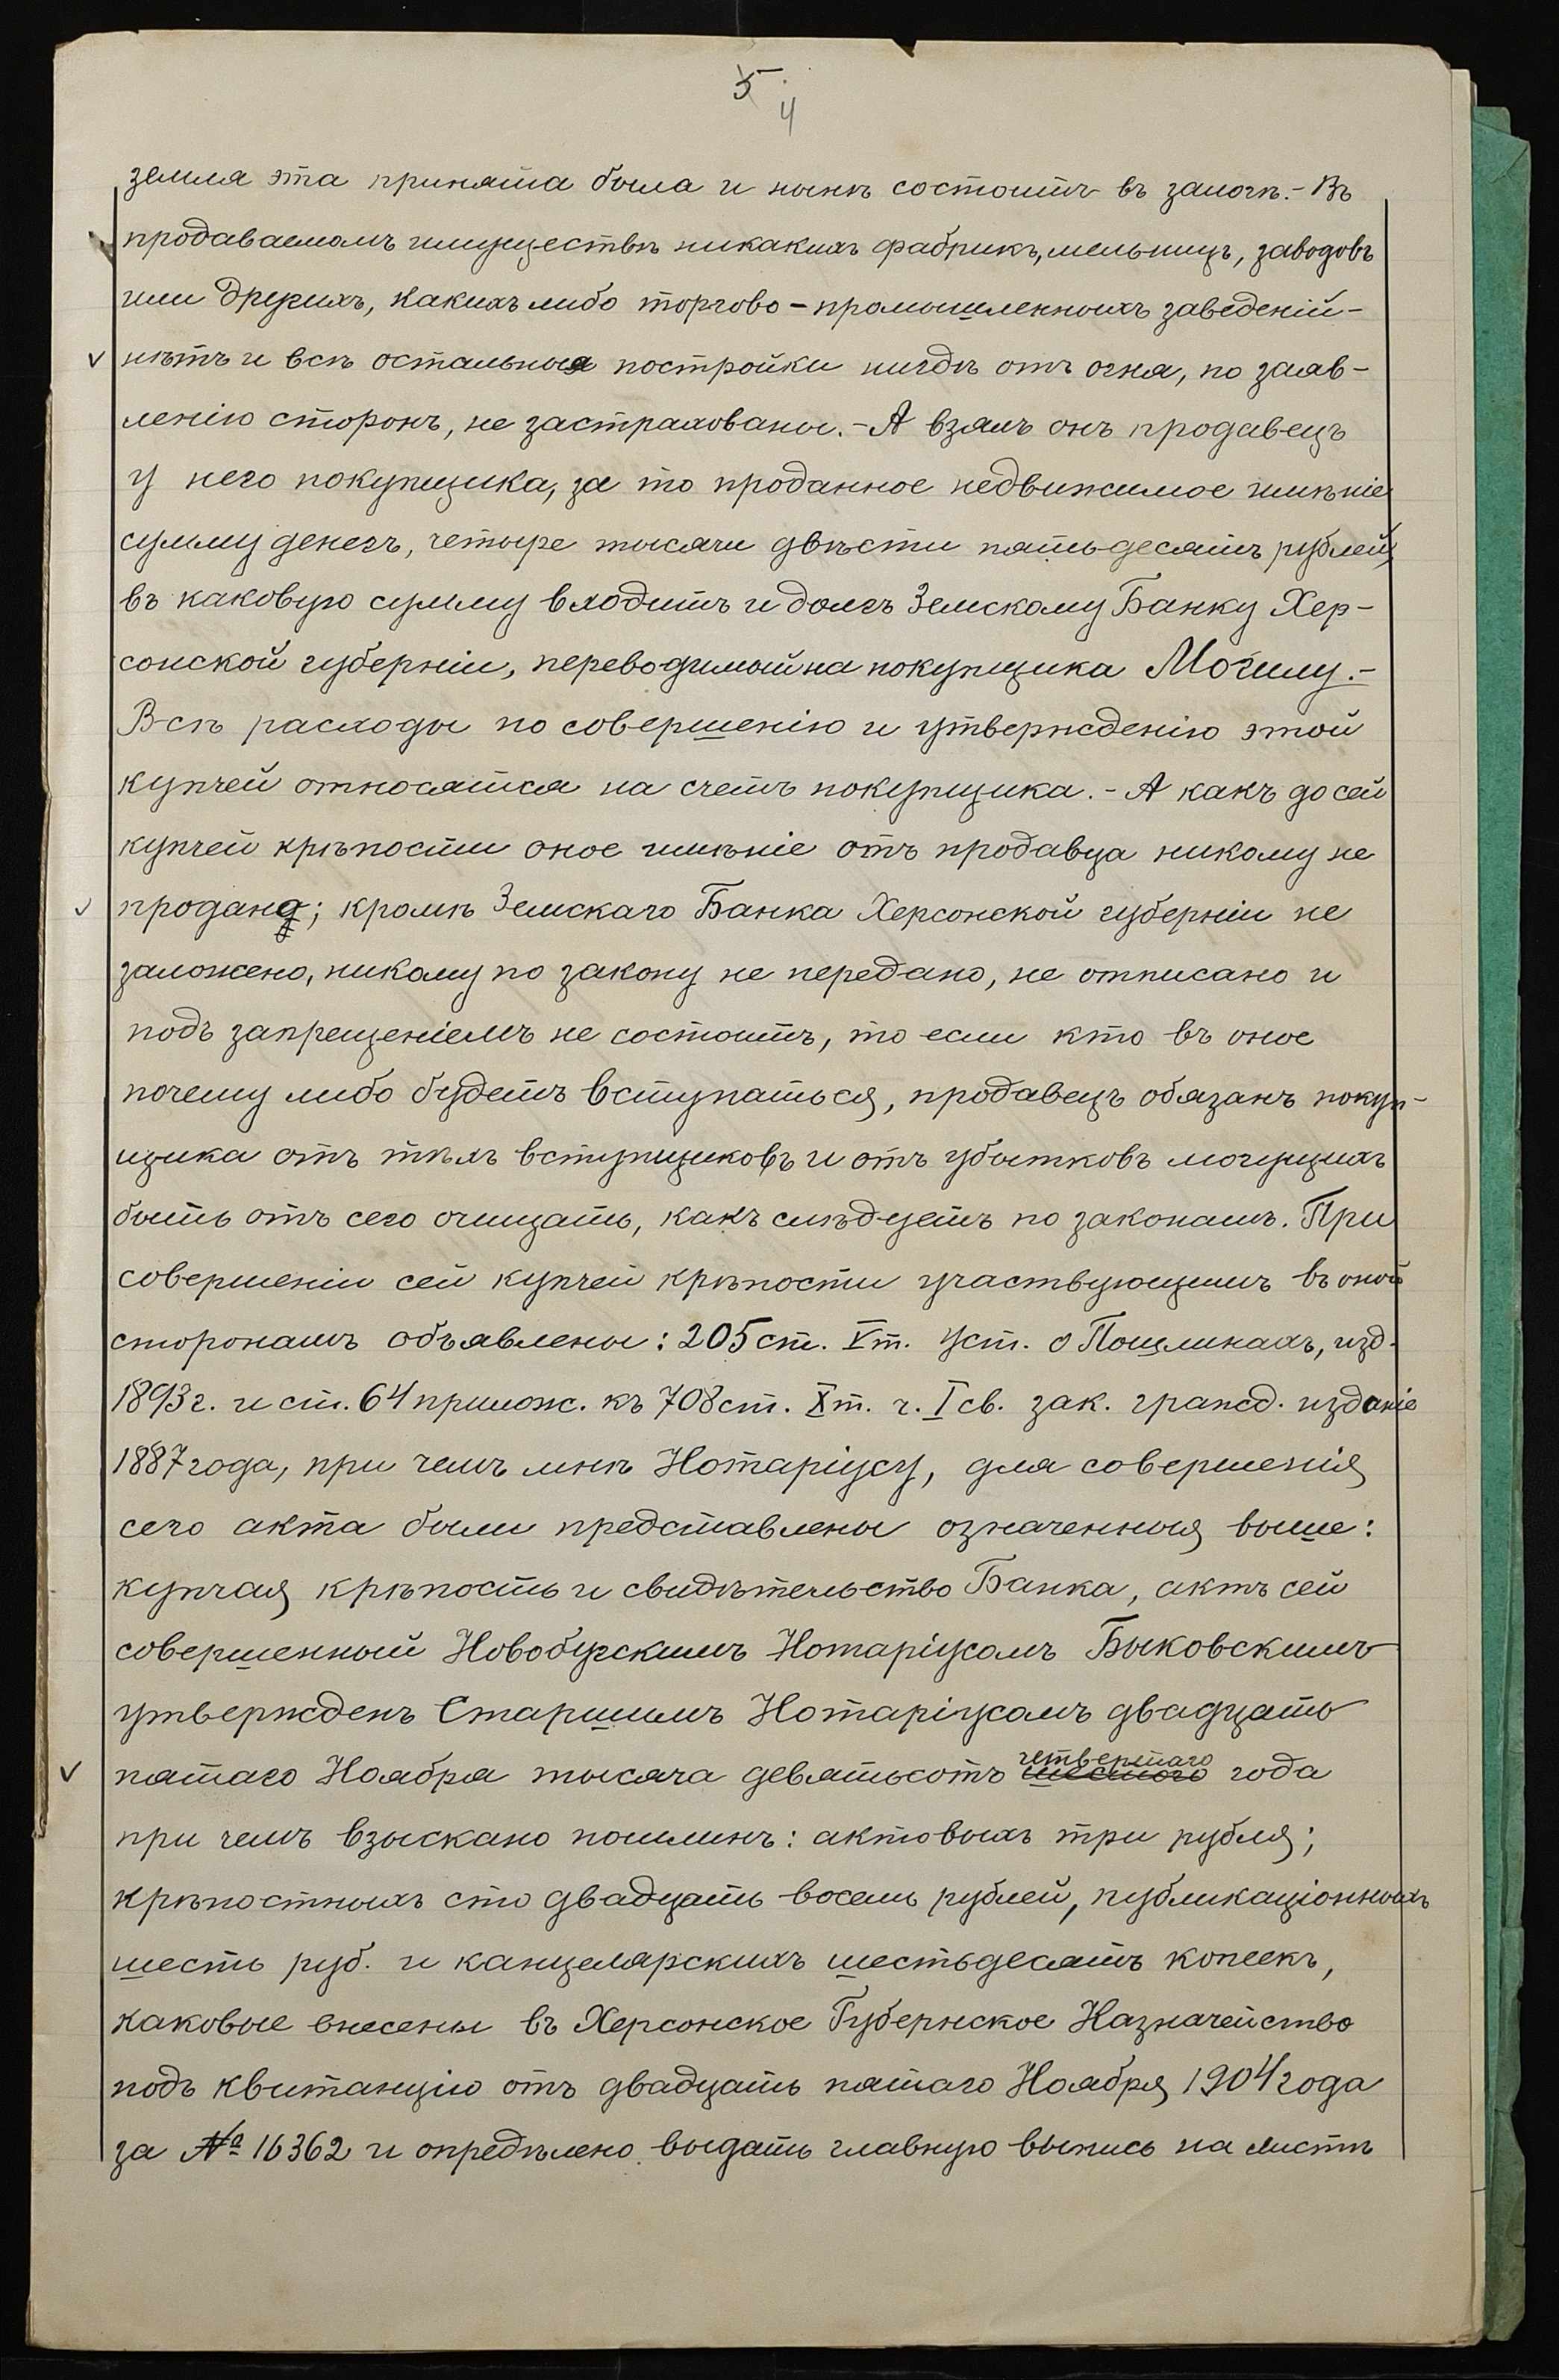 5.
4
земля эта принята была и нынѣ состоитъ въ залогѣ.- Въ
продаваемомъ имуществѣ никакихъ фабрикъ, мельницъ, заводовъ
или другихъ, какихъ либо торгово-промышленныхъ заведеній-
нѣтъ и всѣ остальныя постройки нигдѣ отъ огня, по заяв-
ленію сторонъ, не застрахованы.- А взялъ онъ продавецъ
у него покупщика, за то проданное недвижимое имѣніе
сумму денегъ, четыре тысячи двѣсти пятьдесятъ рублей,
въ каковую сумму входитъ и долгъ Земскому Банку Хер-
сонской губерніи, переводимый на покупщика Могилу.-
Всѣ расходы по совершенію и утвержденію этой
купчей относятся на счетъ покупщика.- А какъ до сей
купчей крѣпости оное имѣніе отъ продавца никому не
продано; кромѣ Земскаго Банка Херсонской губерніи не
заложено, никому по закону не передано, не отписано и
подъ запрещеніемъ не состоитъ, то если кто въ оное
почему либо будетъ вступаться, продавецъ обязанъ покуп-
щика отъ тѣхъ вступщиковъ и отъ убытковъ могущихъ
быть отъ сего очищать, какъ слѣдуетъ по законамъ. При
совершеніи сей купчей крѣпости участвующимъ въ оной
сторонамъ объявлены: 205 ст. V т. Уст. о Пошлинахъ, изд.
1893 г. и ст. 64 прилож. къ 708 ст. X т. ч. I св. зак. гражд. изданіе
1887 года, при чемъ мнѣ Нотаріусу, для совершенія
сего акта были представлены означенныя выше:
купчая крѣпость и свидѣтельство Банка, актъ сей
совершенный Новобугскимъ Нотаріусомъ Быковскимъ
утвержденъ Старшимъ Нотаріусомъ двадцать
четвертаго
пятаго Ноября тысяча девятьсотъ шестого года
при чемъ взыскано пошлинъ: актовыхъ три рубля;
крѣпостныхъ сто двадцать восемь рублей, публикаціонныхъ
шесть руб. и канцелярскихъ шестьдесятъ копеекъ,
каковые внесены въ Херсонское Губернское Назначейство
подъ квитанцію отъ двадцать пятаго Ноября 1904 года
за № 16362 и опредѣлено выдать главную выпись на листѣ